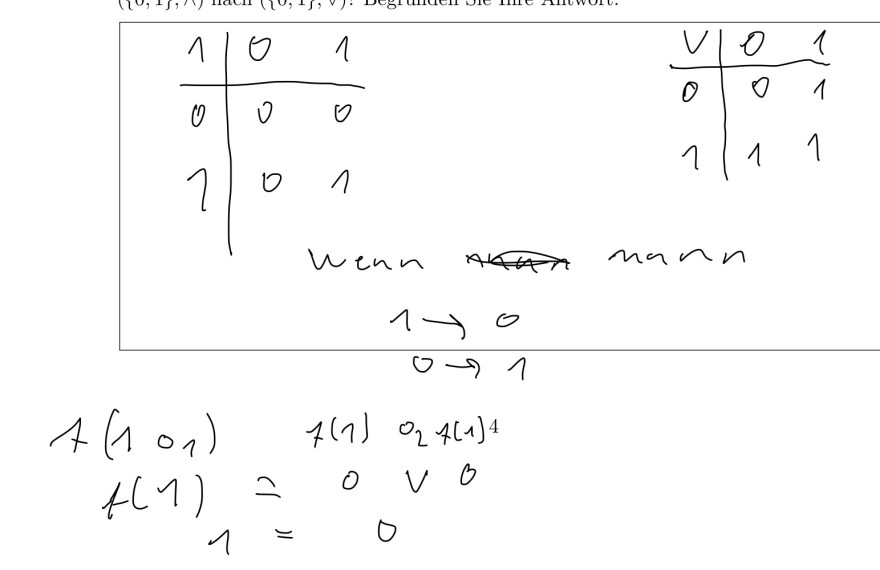 ({0, 1}, ∧) nach ({0, 1}, ∨)? Begründen Sie Ihre Antwort.
1 | 0 1
0 | 0 0
1 | 0 1
V | 0 1
0 | 0 1
1 | 1 1
Wenn mann
1 → 0
0 → 1
f(1 ∘1) f(1) ∘2 f(1)
4
f(1) = 0 V 0
1 = 0